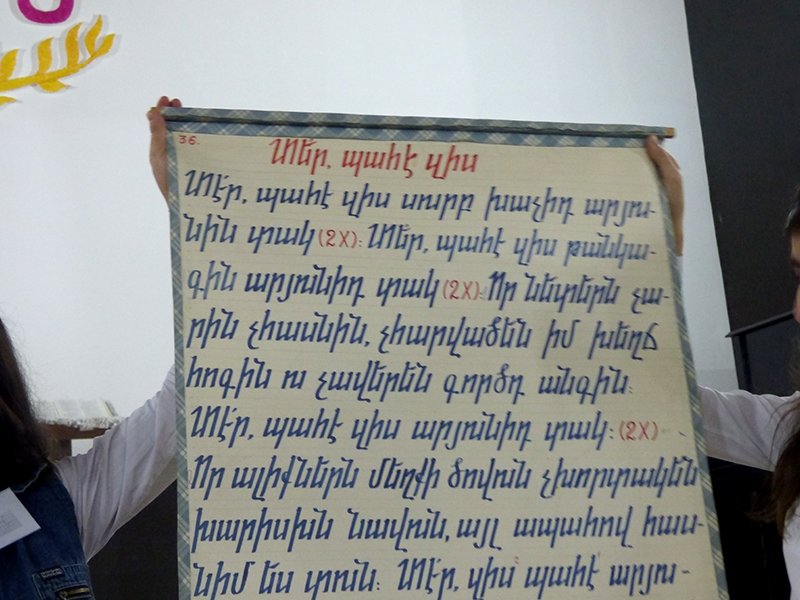 36.
Տեր, պահէ զիս
Տէր, պահէ զիս սուրբ խաչիդ արյու-
նին տակ (2X)։ Տեր, պահէ զիս թանկա-
գին արյունիդ տակ (2X)։ Որ նետերն չա-
րին չհասնին, չհարվածեն իմ խեղճ
հոգին ու չավերեն գործդ անգին։
Տէր, պահէ զիս արյունիդ տակ։ (2X)
Որ ալիքներն մեղքի ծովուն չխորտակեն
խարիսխն նավուն, այլ ապահով հաս-
նիմ ես տուն։ Տէր, զիս պահէ արյու-